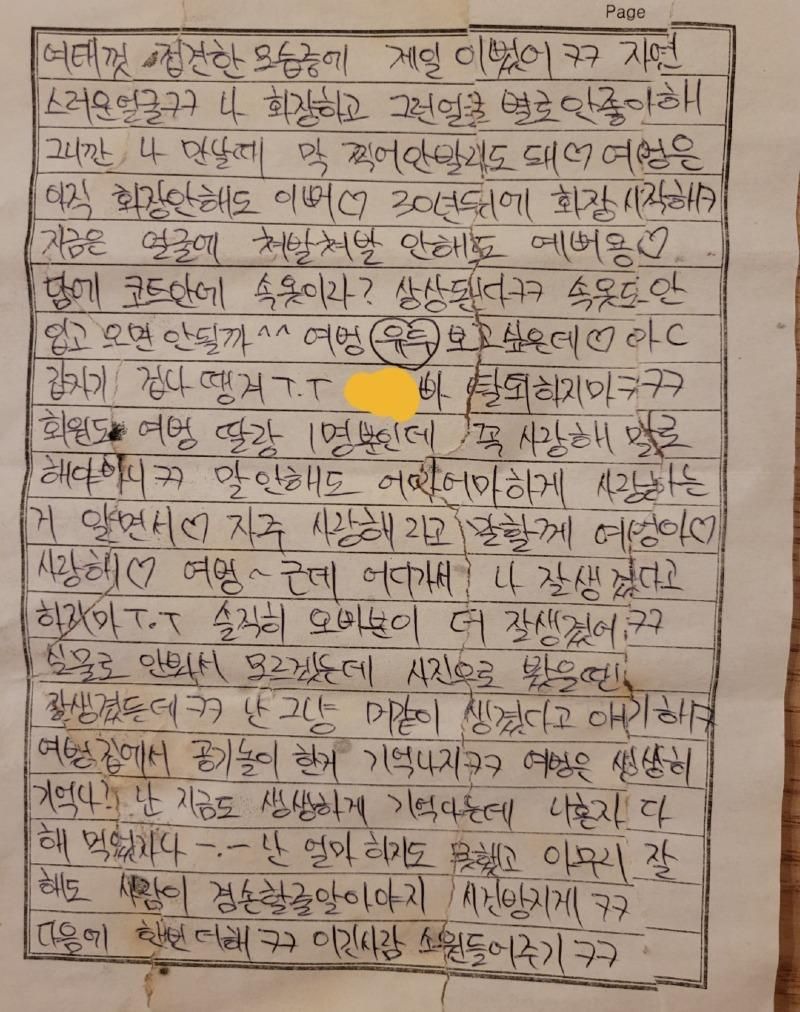 Page
여태껏 접견한 모습중에 제일 이뻤어 ㅋㅋ 자연
스러운얼굴ㅋㅋ 나 화장하고 그런얼굴 별로안좋아해
그니깐 나 만날때 막 찍어안발라도 돼♡ 여벙은
아직 화장안해도 이뻐♡ 30년뒤에 화장시작해ㅋ
지금은 얼굴에 쳐발쳐발 안해도 예뻐용♡
담에 코트안에 속옷이라? 상상된다ㅋㅋ 속옷도 안
입고 오면 안될까^^ 여벙 보고싶은데♡ 아
갑자기 겁나 땡겨 T.T 빠 탈퇴하지마ㅋㅋㅋ
회원도 여벙 딸랑 1명뿐인데 꼭 사랑해 말로
해야하니ㅋㅋ 말안해도 어마어마하게 사랑하는
거 알면서♡ 자주 사랑해 라고 말할께 여벙아♡
사랑해♡ 여벙~ 근데 어디가서 나 잘생겼다고
하지마T.T 솔직히 오빠분이 더 잘생겼어ㅋㅋ
실물로 안봐서 모르겠는데 사진으로 봤을땐
잘생겼든데ㅋㅋ 난그냥 머같이 생겼다고 얘기해ㅋ
여벙집에서 공기놀이 한거 기억나지ㅋㅋ 여벙은 생생히
기억나? 난 지금도 생생하게 기억나는데 나혼자 다
해 먹었자나 -.- 난 얼마 하지도 못했고 아무리 잘
해도 사람이 겸손할줄알아야지 시건방지게 ㅋㅋ
다음에 한번 더해 ㅋㅋ 이긴사람 소원들어주기 ㅋㅋ